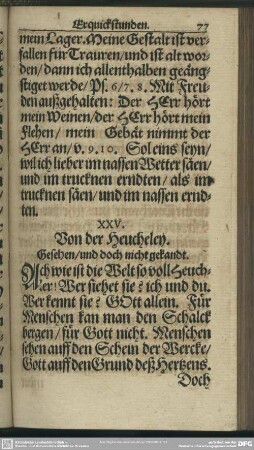 Erquickstunden. 77
mein Lager. Meine Gestalt ist ver-
fallen für Trauren/und ist alt wor-
den/dann ich allenthalben geäng-
stiget werde/Ps. 6/7. 8. Mit Freu-
den außgehalten: Der HErr hört
mein Weinen/der HErr hört mein
Flehen/ mein Gebät nimmt der
HErr an/ v. 9. 10. Sol eins seyn/
wil ich lieber im nassen Wetter säen/
und im trucknen erndten/ als im
trucknen säen/ und im nassen ernd-
ten.
XXV.
Von der Heucheley.
Gesehen/und doch nicht gekandt.
Ach wie ist die Welt so voll Heuch-
ler! Wer siehet sie? ich und du.
Wer kennt sie? GOtt allein. Für
Menschen kan man den Schalck
bergen/ für Gott nicht. Menschen
sehen auff den Schein der Wercke/
Gott auff den Grund deß Hertzens.
Doch